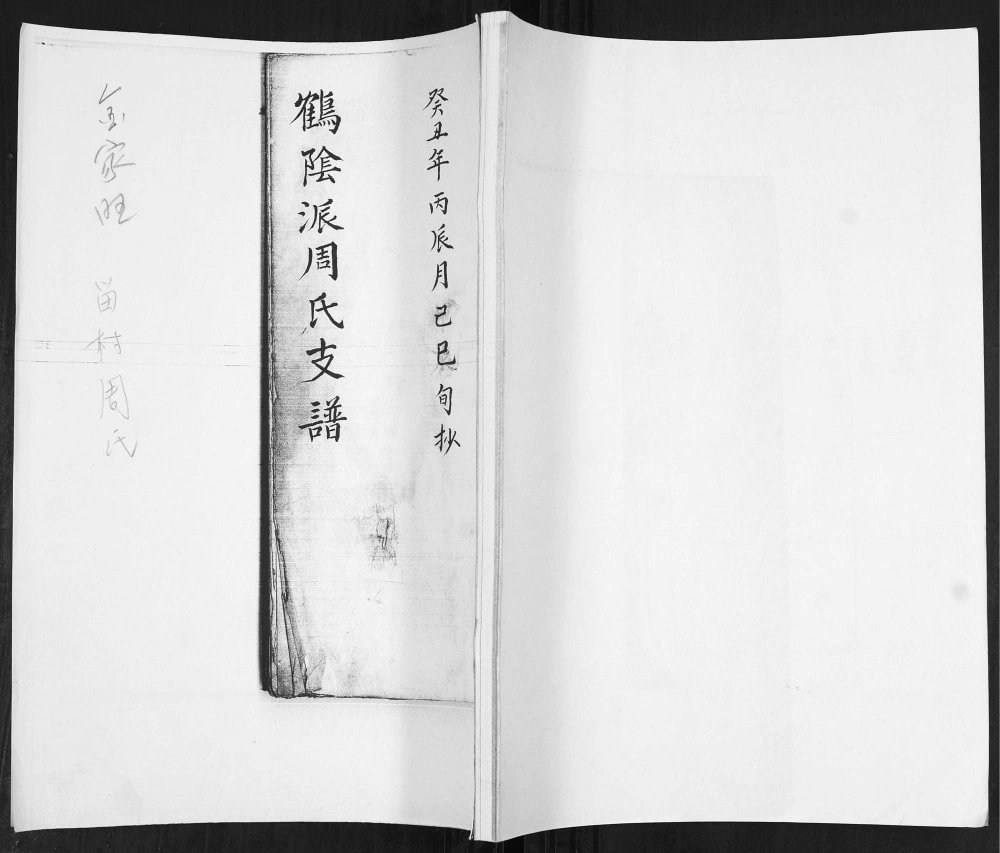 癸丑年丙辰月己巳旬抄
鶴陰派周氏支譜
金家旺 留村周氏